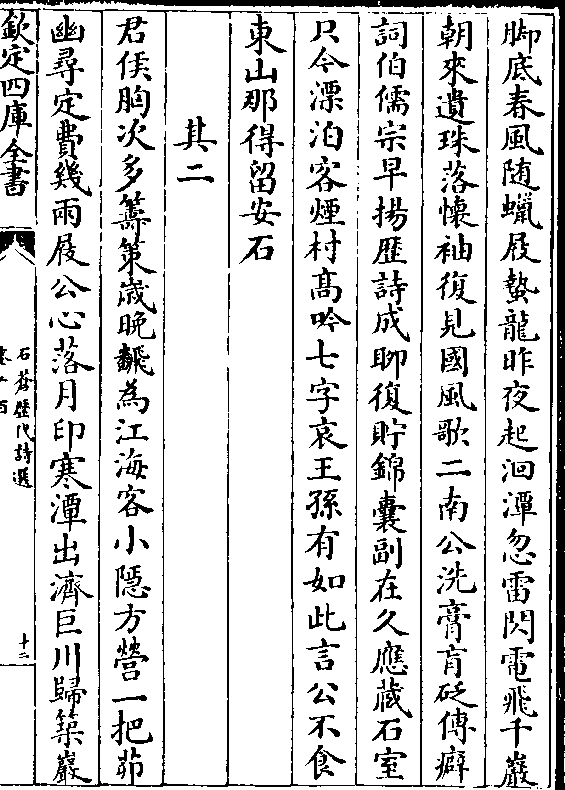 脚底春風随蠟屐蟄龍昨夜起洄潭忽雷閃電飛千巖
朝來遺珠落懷袖復見國風歌二南公洗膏肓砭傳癖
詞伯儒宗早揚歴詩成聊復貯錦囊副在久應蔵石室
只今漂泊客煙村髙吟七字哀王孫有如此言公不食
東山那得留安石
其二
君侯胸次多籌策歲晩飜為江海客小隠方營一把茆
幽尋定費幾兩屐公心落月印寒潭出濟巨川歸築巖
欽定四庫全書
石倉歴代詩選
十二